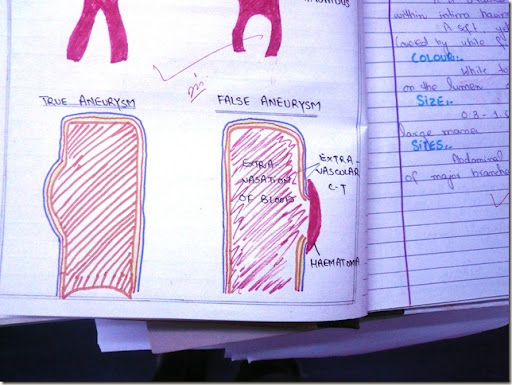 TRUE ANEURYSM
FALSE ANEURYSM
EXTRA
VASATION
OF BLOOD
EXTRA-
VASCULAR
C-T
HAEMATOMA
within intima
A soft,
COLOUR:-
White to
on the lumen
SIZE:-
large
SITES:-
Abdominal
of major